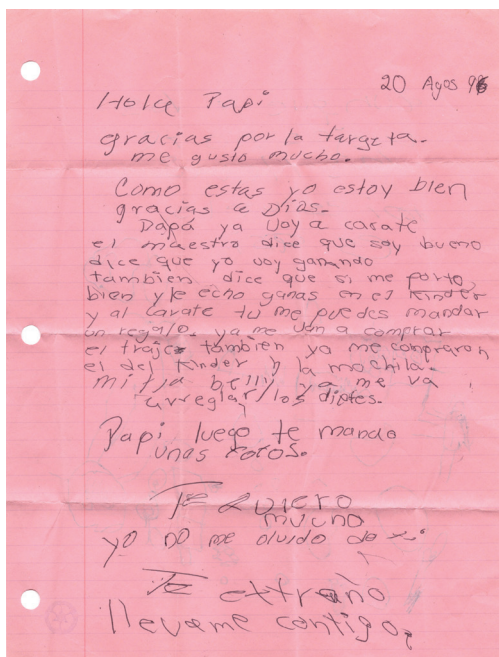 20 Agos 96
Hola Papi
gracias por la targeta.
me gusto mucho.
Como estas yo estoy bien
gracias a Dios.
Papá ya voy a carate
el maestro dice que soy bueno
dice que yo voy ganando
tambien dice que si me porto
bien y le echo ganas en el Kinder
y al carate tú me puedes mandar
un regalo. ya me van a comprar
el traje tambien ya me compraron
el del Kinder y la mochila.
mi tia belly ya me va
arreglar los dietes.
Papi luego te mando
unas fotos.
Te quiero
mucho
yo no me olvido de ti
Te extraño
llevame contigo.